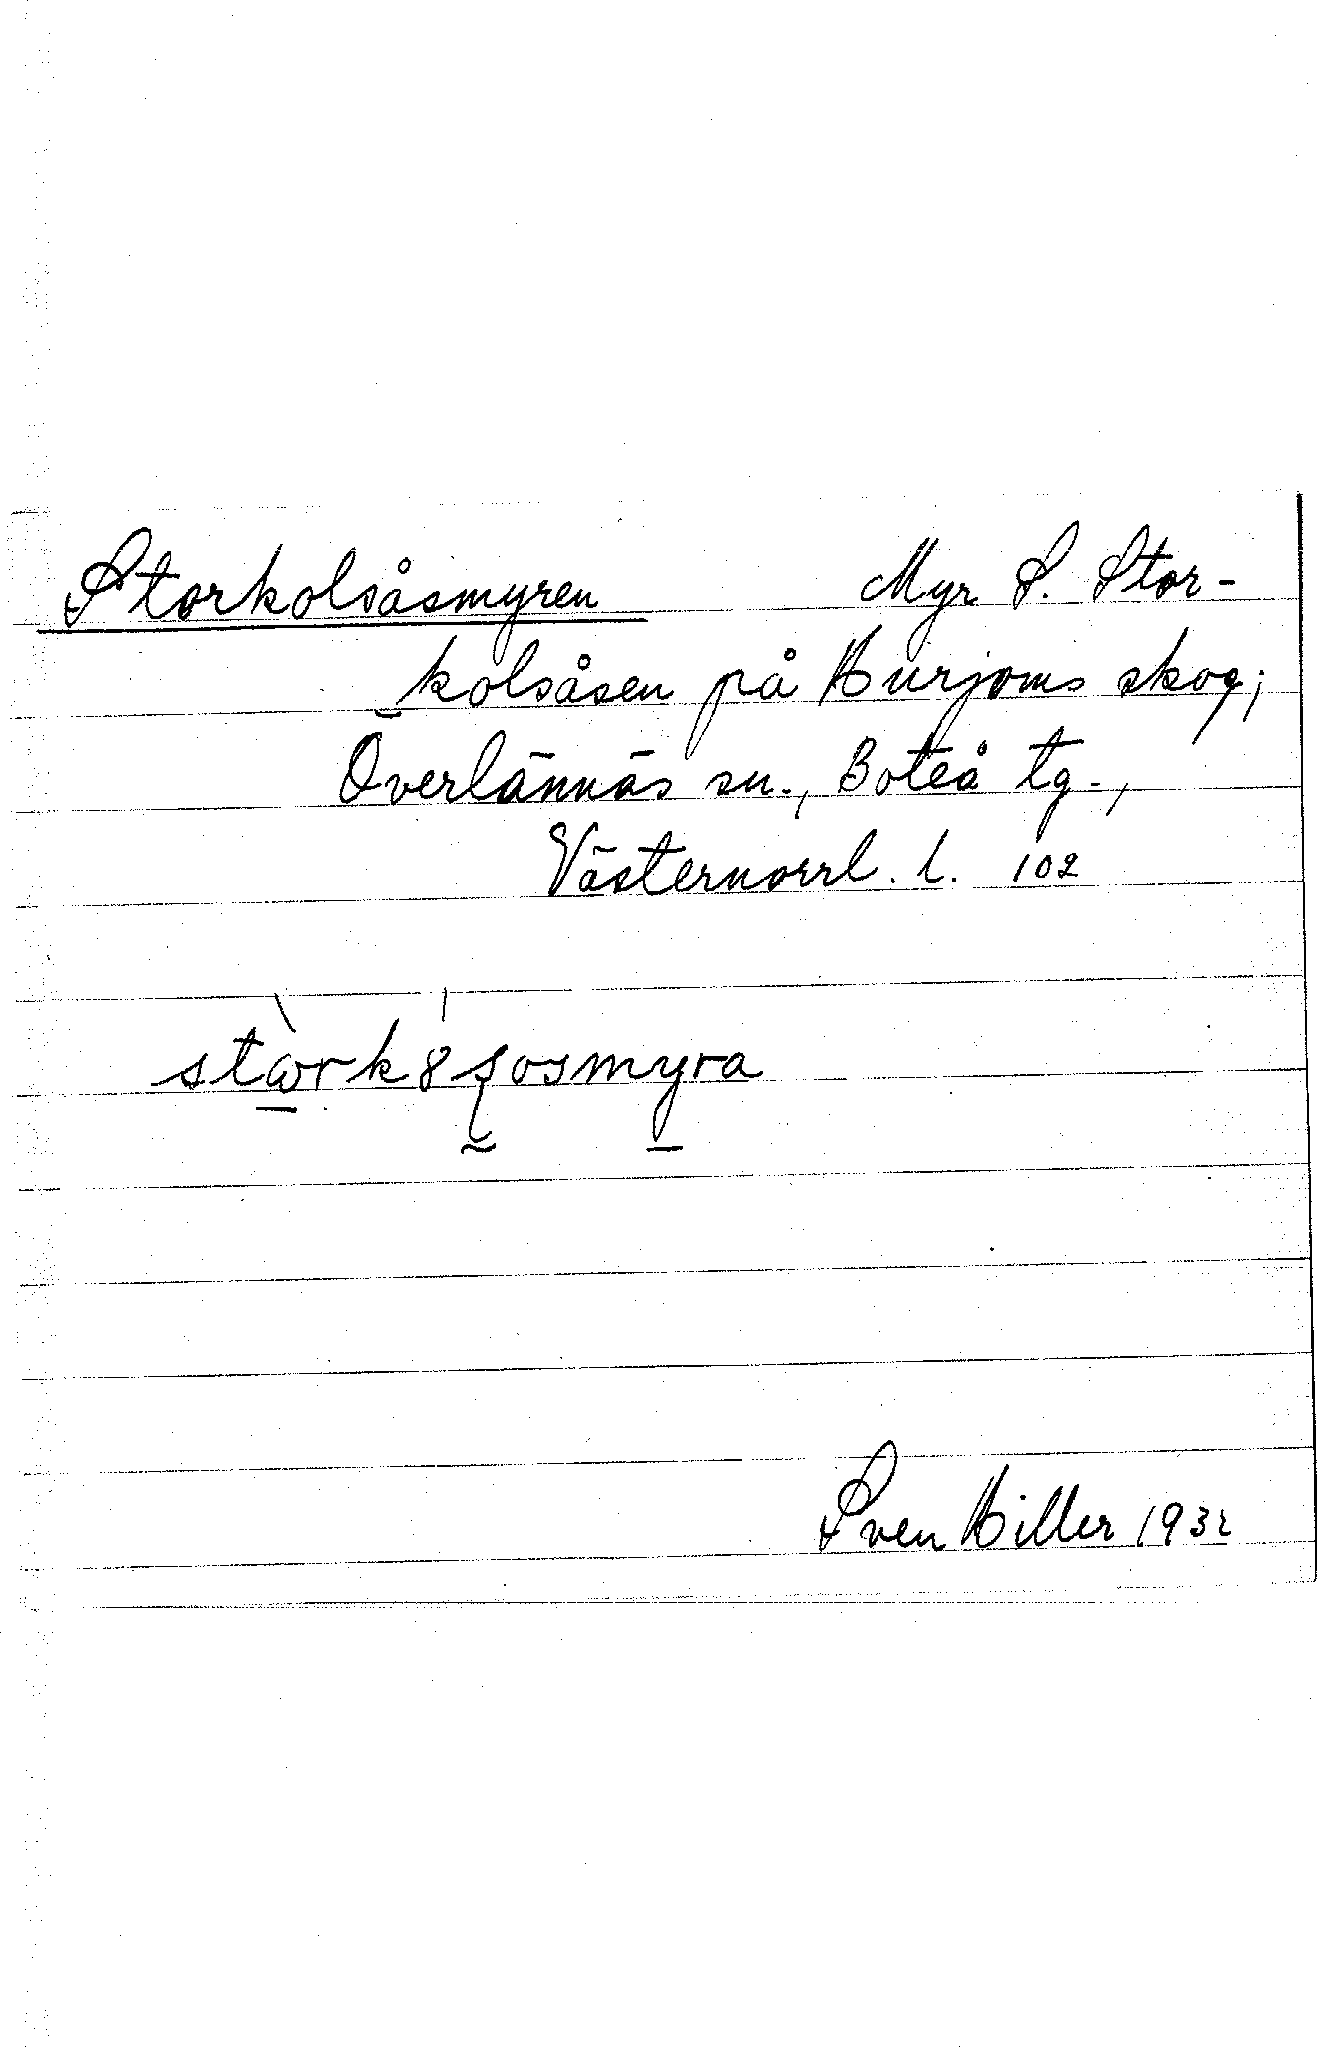 Storkolsåsmyren Myr S. Stor-
kolsåsen på Hurjoms skog;
Överlännäs sn., Boteå tg.,
Västernorrl. l. 102
Sven Hiller 1932